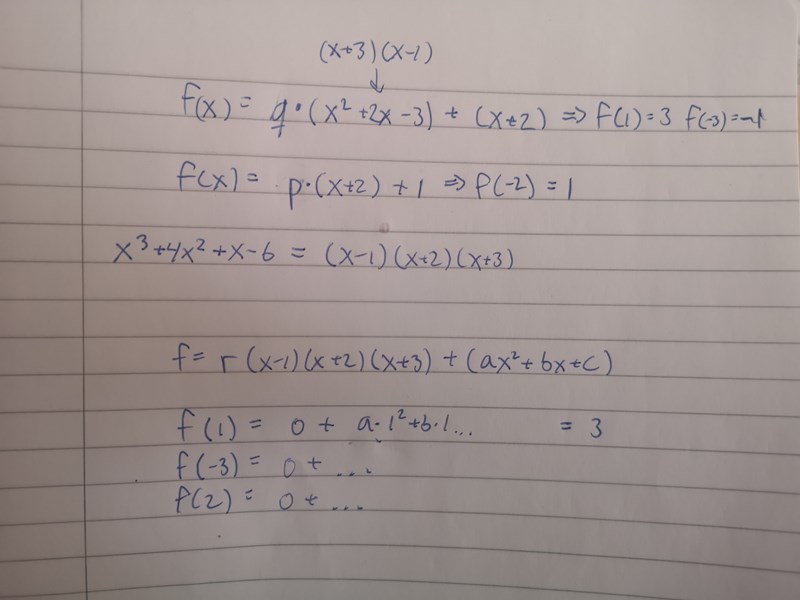 (x+3)(x-1)
↓
f(x) = q·(x² +2x -3) + (x+2) => f(1) = 3 f(-3) = -1
f(x) = p·(x+2) + 1 => f(-2) = 1
x³+4x²+x-6 = (x-1)(x+2)(x+3)
f = r (x-1)(x+2)(x+3) + (ax²+bx+c)
f(1) = 0 + a·1²+b·1... = 3
f(-3) = 0 + ...
f(2) = 0 + ...